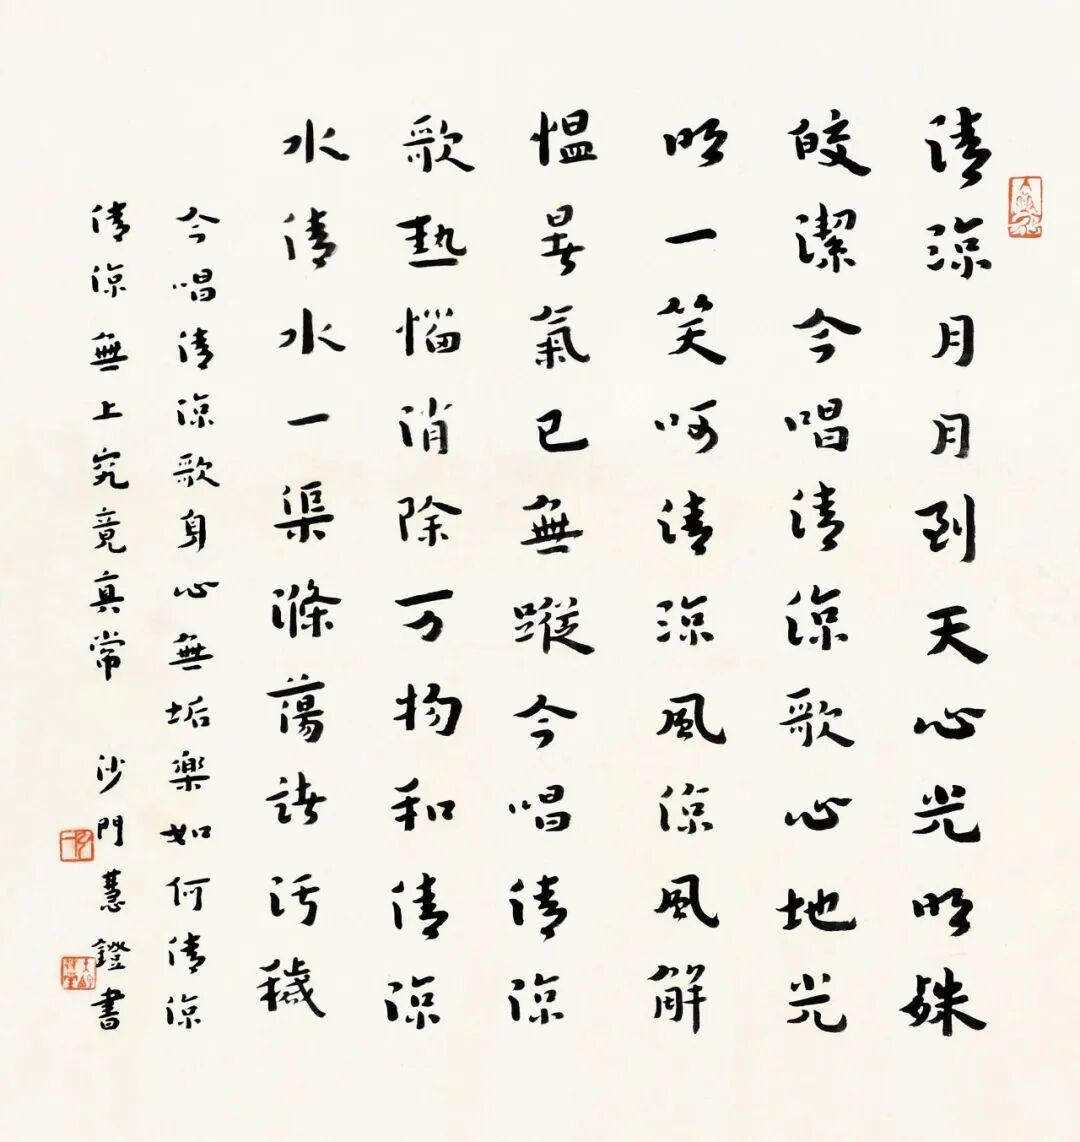 清涼月月到天心光明殊
皎潔今唱清涼歌心地光
明一笑呵清涼風涼風解
愠暑氣已無蹤今唱清涼
歌熱惱消除万物和清涼
水清水一渠滌蕩諸污穢
今唱清涼歌身心無垢樂如何清涼
清涼無上究竟真常 沙門慧鐙書